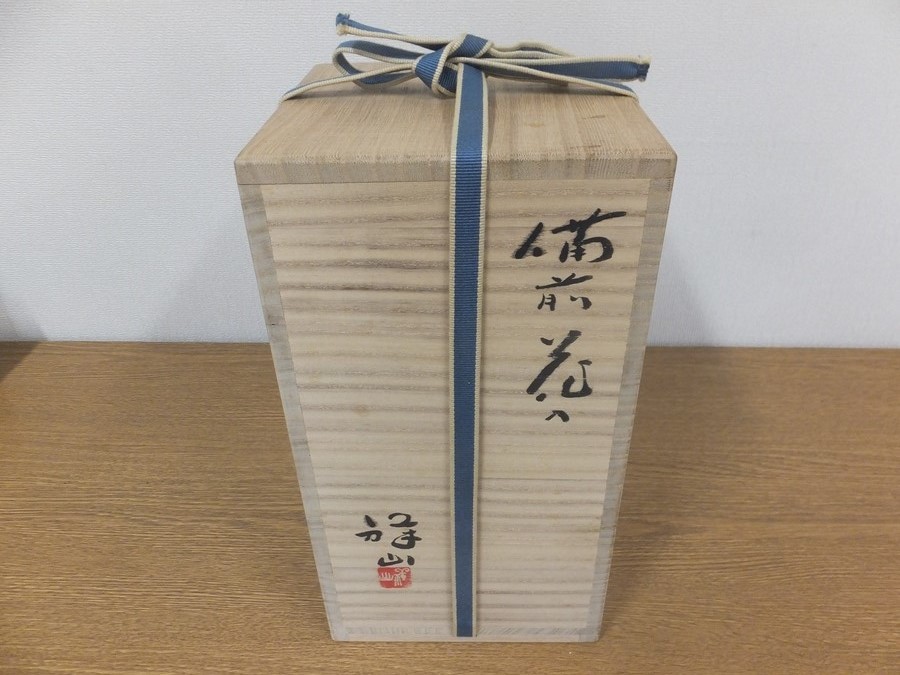 備前 花入
祥山